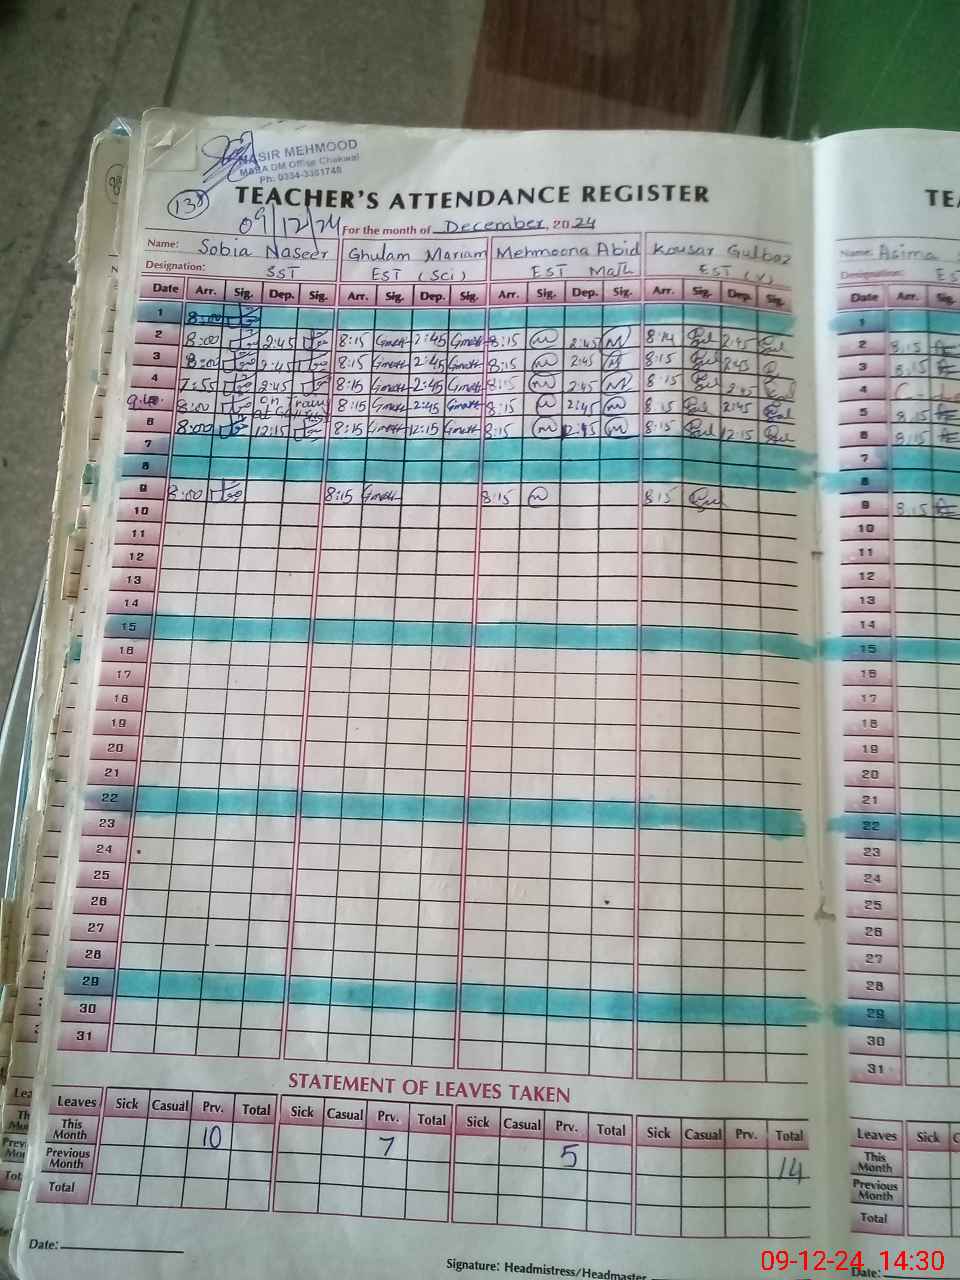 NASIR MEHMOOD
MAEA DM Office Chakwal
Ph: 0334-3351748
138
TEACHER'S ATTENDANCE REGISTER
09/12/24 For the month of December, 2024
Name: Sobia Naseer Ghulam Mariam Mehmoona Abid Kousar Gulbaz
Designation: SST EST (Sci) EST Math EST (V)
Date Arr. Sig. Dep. Sig. Arr. Sig. Dep. Sig. Arr. Sig. Dep. Sig. Arr. Sig. Dep. Sig.
1 8:00
2 8:00 2:45 8:15 2:45 8:15 2:45 8:14 2:45
3 8:00 2:45 8:15 2:45 8:15 2:45 8:15 2:45
4 7:55 2:45 8:15 2:45 8:15 2:45 8:15 2:45
5 8:00 On 8:15 2:45 8:15 2:45 8:15 2:45
6 8:00 12:15 8:15 12:15 8:15 12:15 8:15 12:15
7
8
9 8:00 8:15 8:15 8:15
10
11
12
13
14
15
16
17
18
19
20
21
22
23
24
25
26
27
28
29
30
31
STATEMENT OF LEAVES TAKEN
Leaves Sick Casual Prv. Total Sick Casual Prv. Total Sick Casual Prv. Total Sick Casual Prv. Total
This Month 10 7 5 14
Previous Month
Total
Date:
Signature: Headmistress/Headmaster
TEA
Name: Asima
Designation: EST
Date Arr. Sig.
1
2 8:15
3 8:15
4
5 8:15
6 8:15
7
8
9 8:15
10
11
12
13
14
15
16
17
18
19
20
21
22
23
24
25
26
27
28
29
30
31
Leaves Sick C
This Month
Previous Month
Total
Date:
09-12-24 14:30